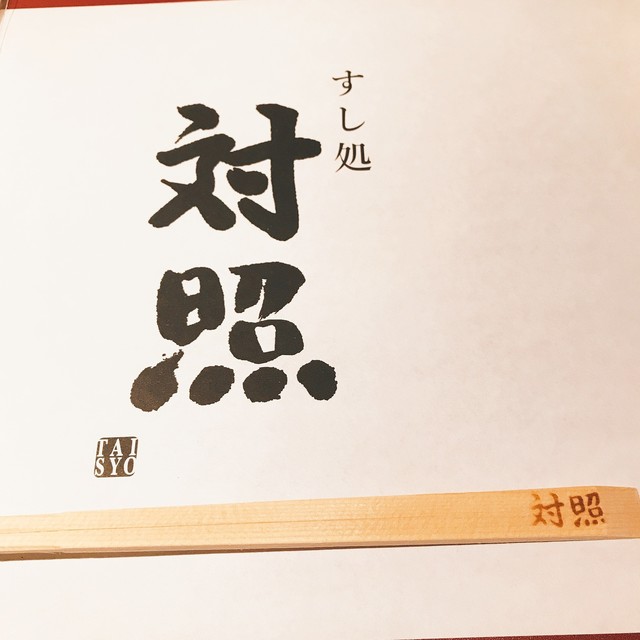 すし処
対照
TAI
SYO
対照